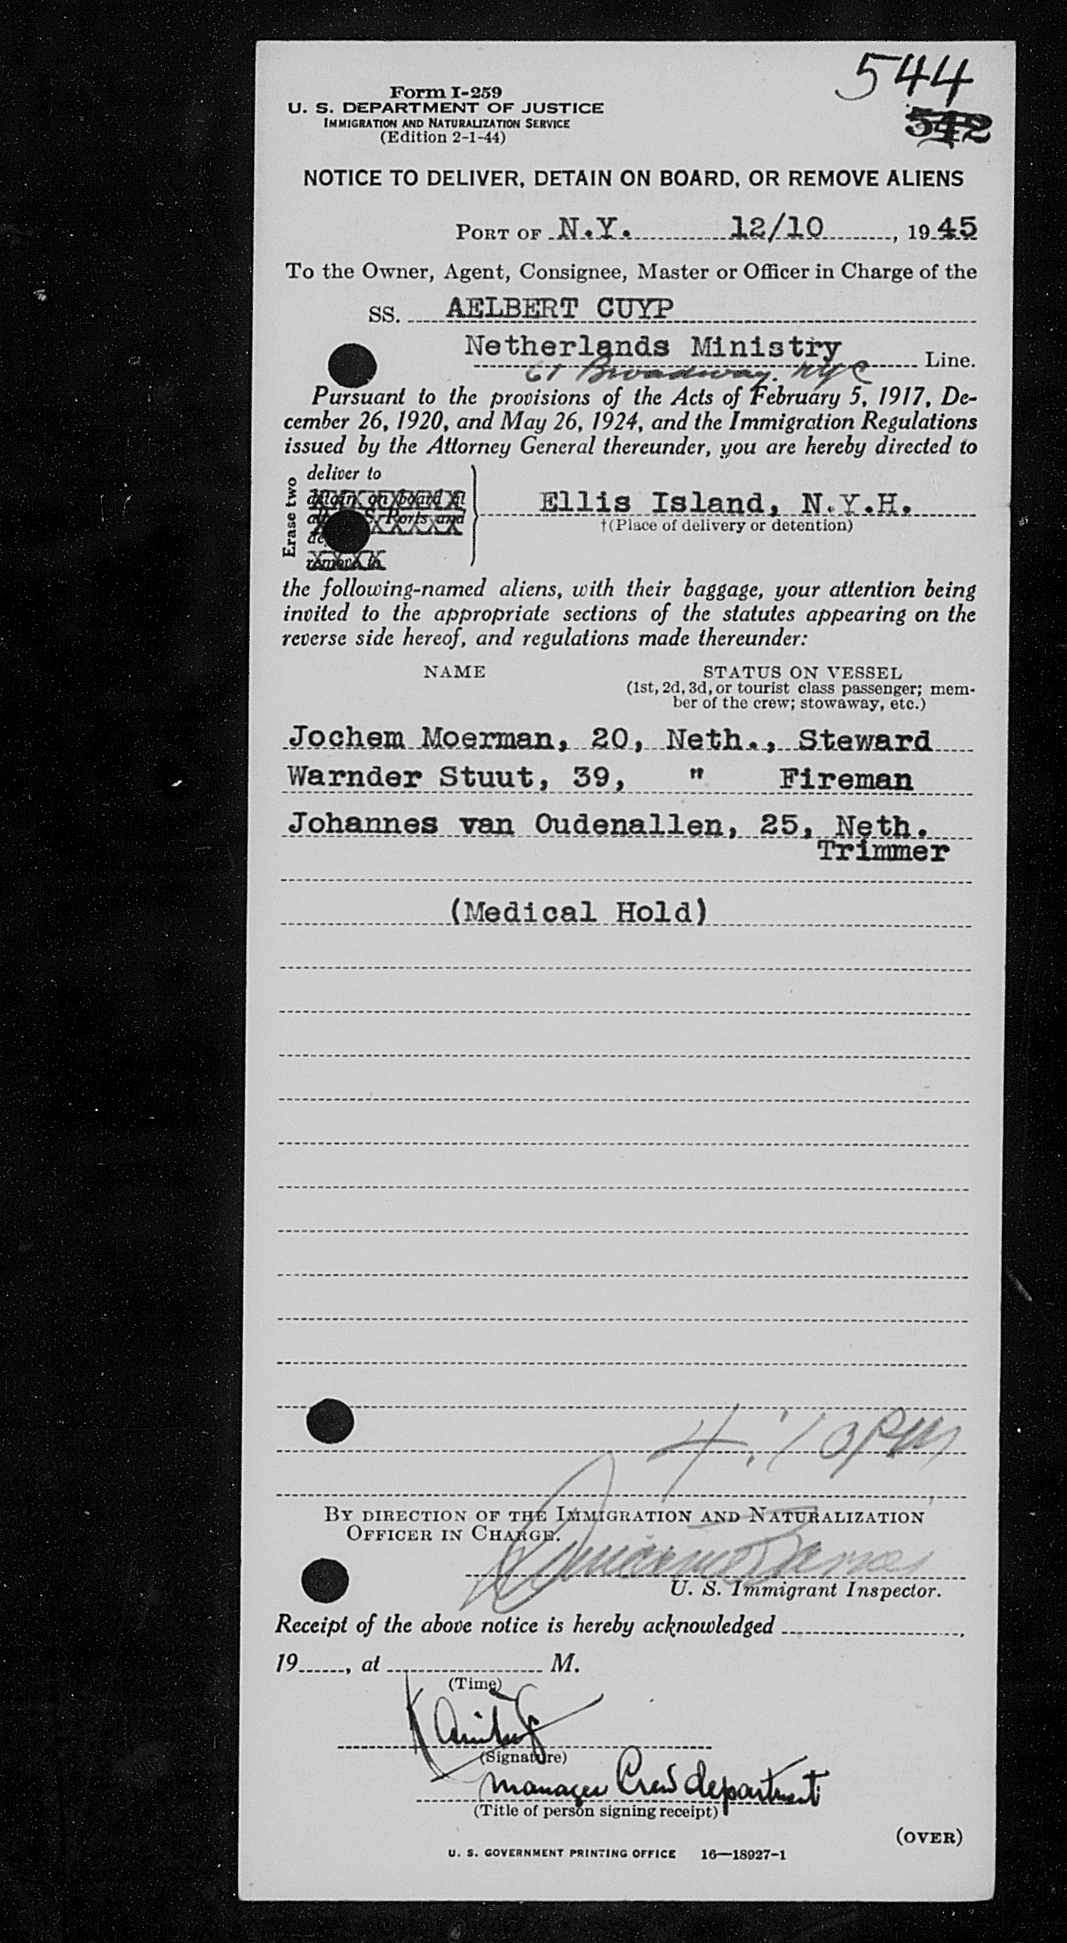 544
542
Form I-259
U. S. DEPARTMENT OF JUSTICE
IMMIGRATION AND NATURALIZATION SERVICE
(Edition 2-1-44)
NOTICE TO DELIVER, DETAIN ON BOARD, OR REMOVE ALIENS
PORT OF N.Y. 12/10, 1945
To the Owner, Agent, Consignee, Master or Officer in Charge of the
SS. AELBERT CUYP
Netherlands Ministry Line.
61 Broadway. NYC
Pursuant to the provisions of the Acts of February 5, 1917, De-
cember 26, 1920, and May 26, 1924, and the Immigration Regulations
issued by the Attorney General thereunder, you are hereby directed to
Erase two
deliver to
detain on board at
Ports and
remove to
Ellis Island, N.Y.H.
†(Place of delivery or detention)
the following-named aliens, with their baggage, your attention being
invited to the appropriate sections of the statutes appearing on the
reverse side hereof, and regulations made thereunder:
NAME STATUS ON VESSEL
(1st, 2d, 3d, or tourist class passenger; mem-
ber of the crew; stowaway, etc.)
Jochem Moerman, 20, Neth., Steward
Warnder Stuut, 39, " Fireman
Johannes van Oudenallen, 25, Neth.
Trimmer
(Medical Hold)
4:10 PM
BY DIRECTION OF THE IMMIGRATION AND NATURALIZATION
OFFICER IN CHARGE.
U. S. Immigrant Inspector.
Receipt of the above notice is hereby acknowledged ,
19 , at M.
(Time)
(Signature)
manager Crew department
(Title of person signing receipt)
(OVER)
U. S. GOVERNMENT PRINTING OFFICE 16—18927-1